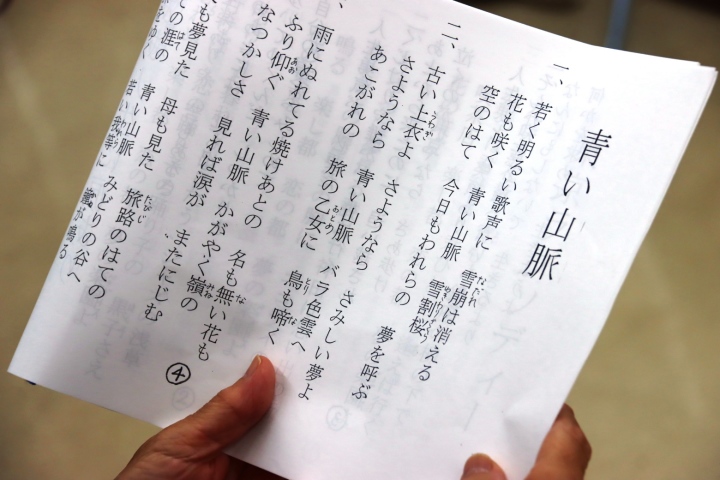 青い山脈
一、
若く明るい歌声に 雪崩は消える
花も咲く 青い山脈 雪割桜
空のはて 今日もわれらの 夢を呼ぶ
二、
古い上衣よ さようなら さみしい夢よ
さようなら 青い山脈 バラ色雲へ
あこがれの 旅の乙女に 鳥も啼く
雨にぬれてる焼けあとの 名も無い花も
ふり仰ぐ 青い山脈 かがやく嶺の
なつかしさ 見れば涙が またにじむ
も夢見た 母も見た 旅路のはての
の涯の 青い山脈 みどりの谷へ
をゆく 若い我等に 鐘が鳴る
④